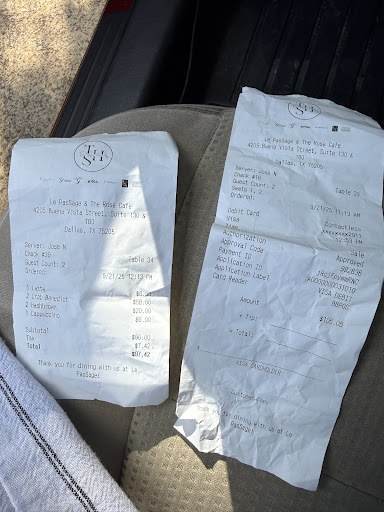 TH
SH
Le PasSage & The Rose Cafe
4205 Buena Vista Street, Suite 130 &
180
Dallas, TX 75205
Server: Jose N
Check #39 Table 34
Guest Count: 2
Ordered: 9/21/25 12:13 PM
1 Latte $6.00
2 Crab Benedict $58.00
2 Hashbrown $20.00
1 Cappuccino $6.00
Subtotal $90.00
Tax $7.42
Total $97.42
Thank you for dining with us at Le
PasSage!
TH
SH
Le PasSage & The Rose Cafe
4205 Buena Vista Street, Suite 130 &
180
Dallas, TX 75205
Server: Jose N
Check #19 Table 39
Guest Count: 2
Seats 1, 2
Ordered: 9/21/25 11:13 AM
Debit Card Contactless
VISA
Time 12:53 PM
Authorization Approved
Approval Code
Payment ID
Application ID A0000000031010
Application Label VISA DEBIT
Card Reader BBPOS
Amount $106.09
+ Tip:
= Total:
X
VISA CARDHOLDER
Customer Copy
Thank you for dining with us at Le
PasSage!